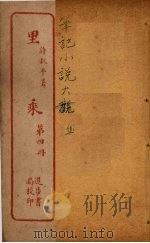 筆記小說大觀
許叔平著
里乘
第四冊
進步書
局校印